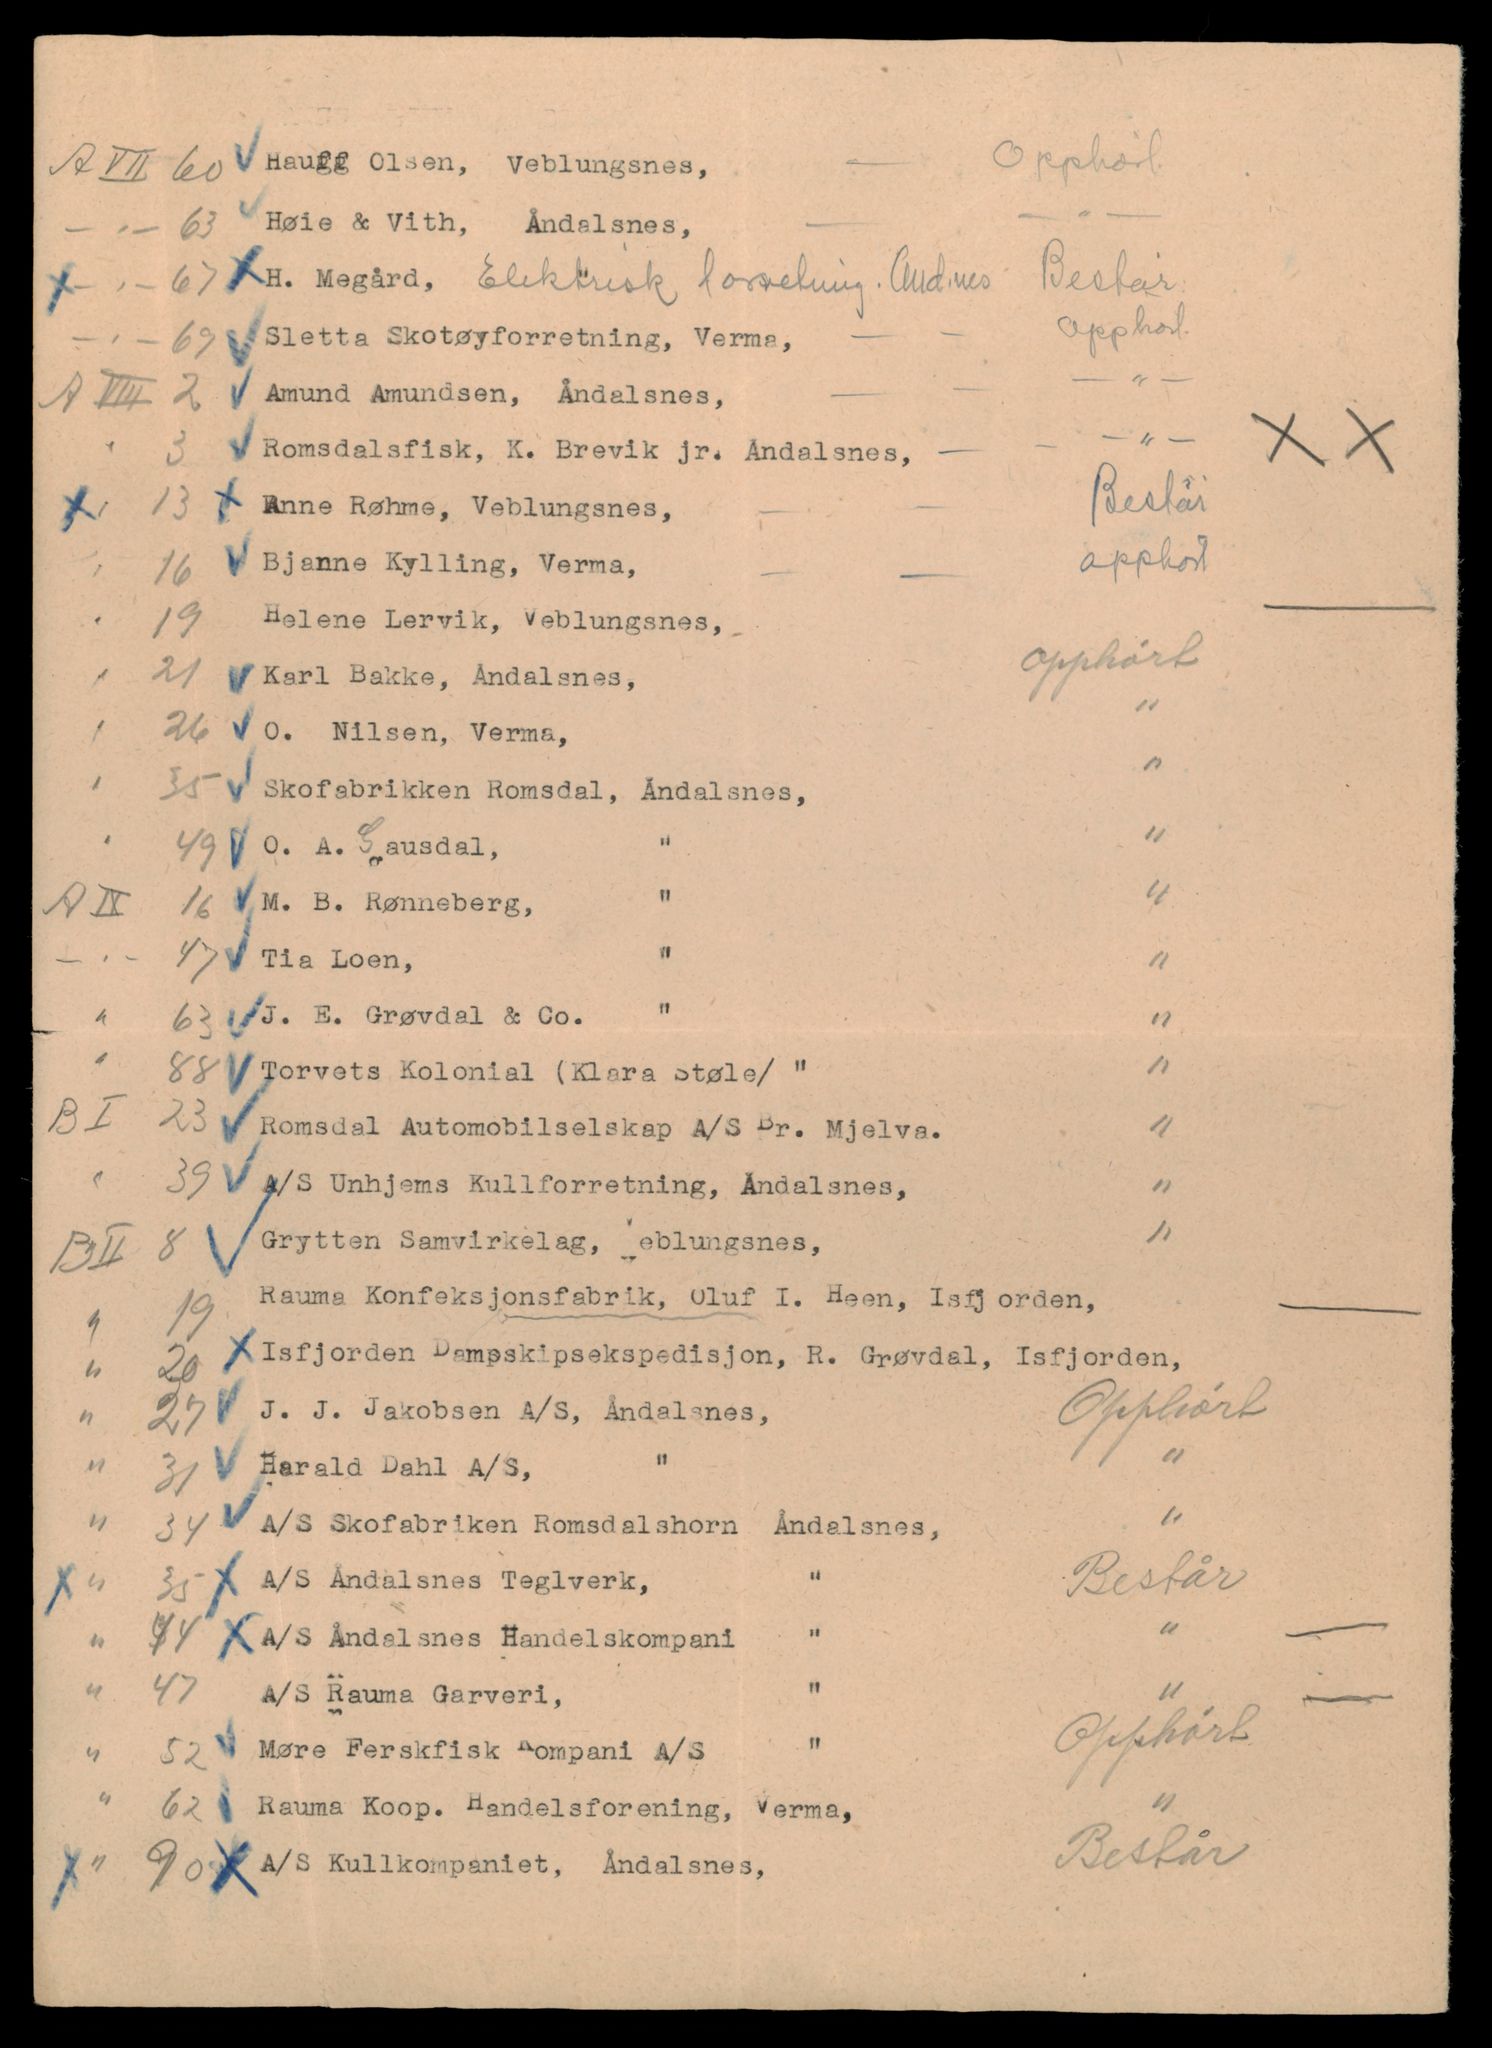 A VII 60 Haugg Olsen, Veblungsnes, — Opphørt
— " — 63 Høie & Vith, Åndalsnes, — — " —
X — " — 67 X H. Megård, " Elektrisk forretning. Åndnes Består
— " — 69 Sletta Skotøyforretning, Verma, — — opphørt
A VIII 2 Amund Amundsen, Åndalsnes, — — — " —
" 3 Romsdalsfisk, K. Brevik jr. Åndalsnes, — — — " — X X
X " 13 X Anne Røhme, Veblungsnes, — — Består
" 16 Bjanne Kylling, Verma, — — opphørt
" 19 Helene Lervik, Veblungsnes, —
" 21 Karl Bakke, Åndalsnes, opphørt
" 26 O. Nilsen, Verma, "
" 35 Skofabrikken Romsdal, Åndalsnes, "
" 49 O. A. Gausdal, " "
A IX 16 M. B. Rønneberg, " "
— " — 47 Tia Loen, " "
" 63 J. E. Grøvdal & Co. " "
" 88 Torvets Kolonial (Klara Støle/ " "
B I 23 Romsdal Automobilselskap A/S Br. Mjelva. "
" 39 A/S Unhjems Kullforretning, Åndalsnes, "
B II 8 Grytten Samvirkelag, Veblungsnes, "
" 19 Rauma Konfeksjonsfabrik, Oluf I. Heen, Isfjorden, —
" 20 X Isfjorden Dampskipsekspedisjon, R. Grøvdal, Isfjorden,
" 27 J. J. Jakobsen A/S, Åndalsnes, Opphørt
" 31 Harald Dahl A/S, " "
" 34 A/S Skofabriken Romsdalshorn Åndalsnes, "
X " 35 X A/S Åndalsnes Teglverk, " Består
" 44 X A/S Åndalsnes Handelskompani " " —
" 47 A/S Rauma Garveri, " " —
" 52 Møre Ferskfisk Kompani A/S " Opphørt
" 62 Rauma Koop. Handelsforening, Verma, "
X " 90 X A/S Kullkompaniet, Åndalsnes, Består